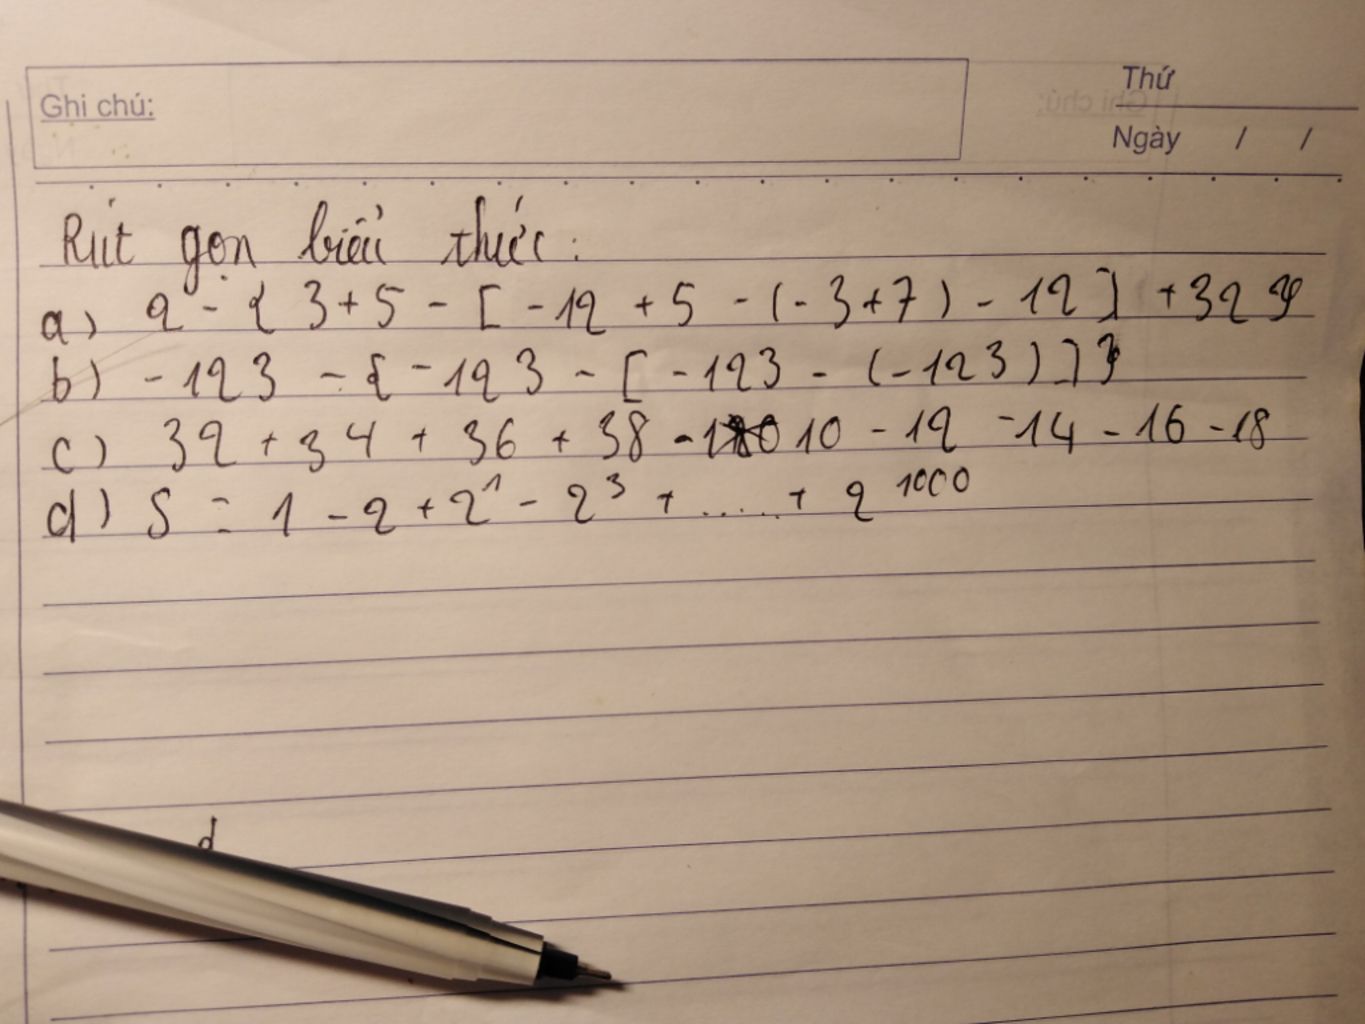 Ghi chú:
Thứ
Ngày / /
Rút gọn biểu thức:
a) 2 - { 3 + 5 - [ -12 + 5 - (-3 + 7) - 12 ] + 32 }
b) -123 - { -123 - [ -123 - (-123) ] }
c) 32 + 34 + 36 + 38 - 10 - 12 - 14 - 16 - 18
d) S = 1 - 2 + 2¹ - 2³ + ..... + 2¹⁰⁰⁰
d